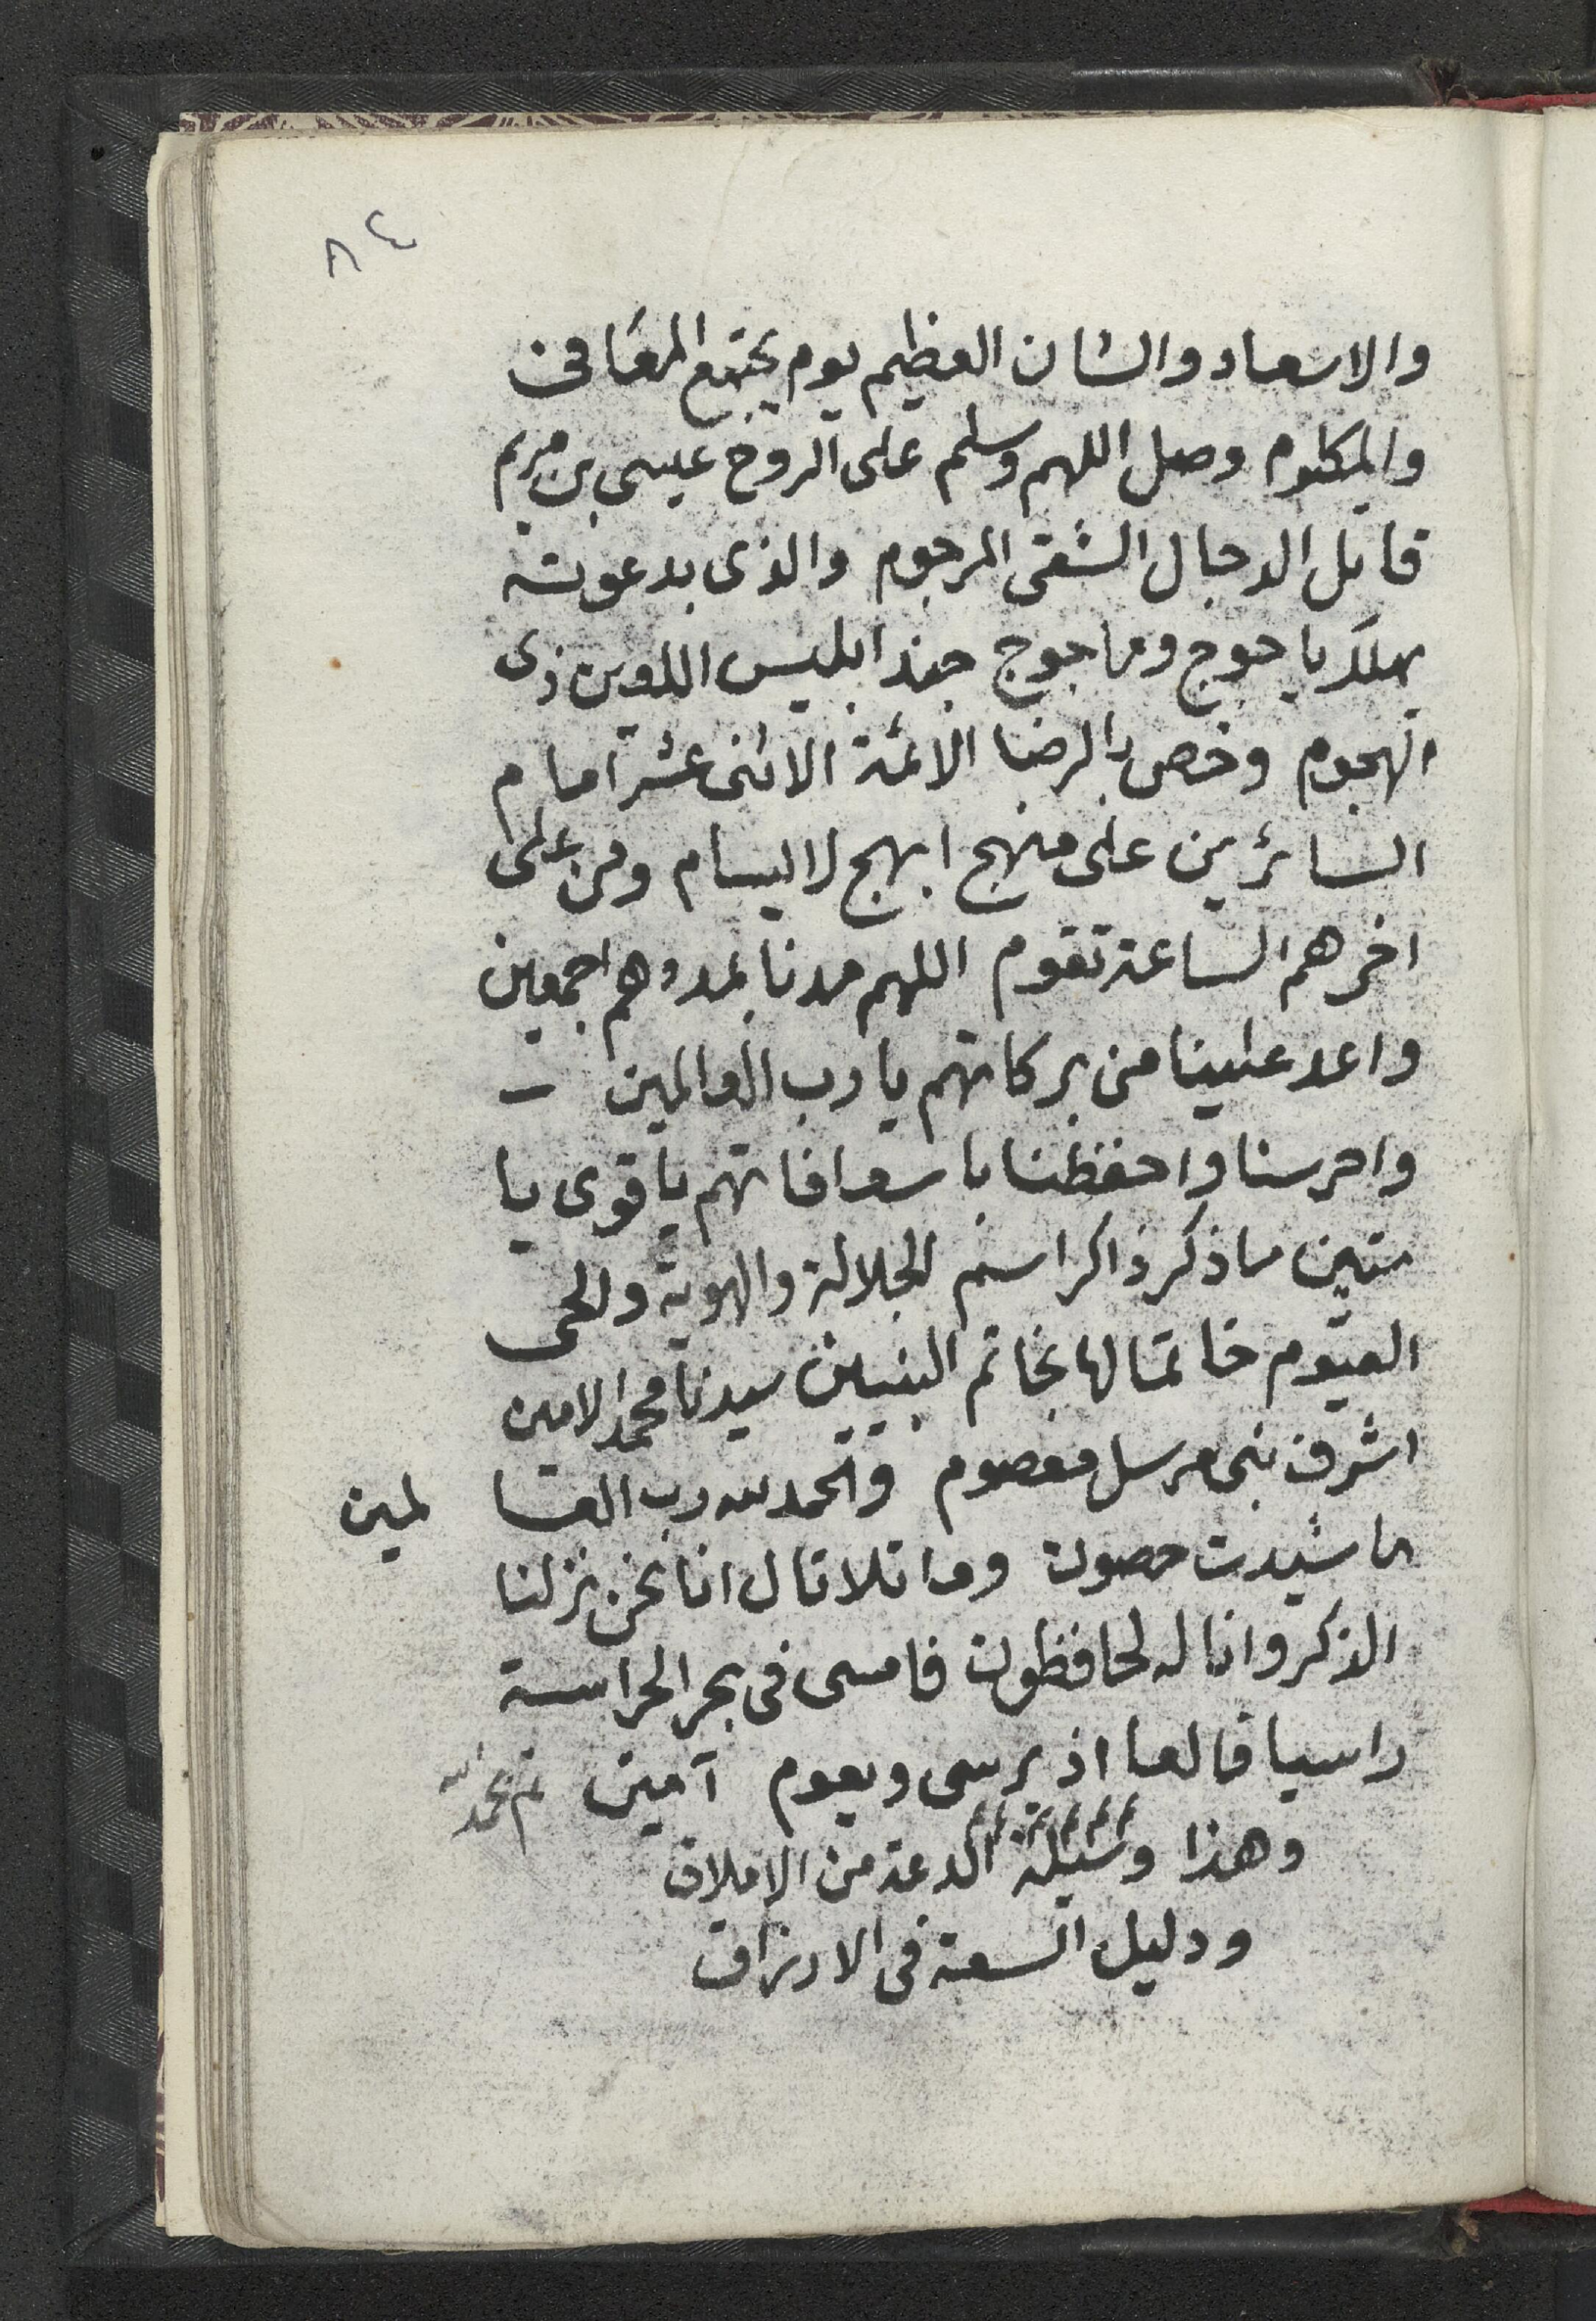 ٨٤
والاسعاد والشان العظيم يوم يجتمع المعافى
والمكلوم وصل اللهم وسلم على الروح عيسى بن مريم
قاتل الدجال الشقى المرجوم والذى بدعوته
يهلك ياجوج وماجوج جند ابليس اللعين ذى
الهجوم وخص بالرضا الائمة الاثنى عشر امام
السائرين على منهج ابهج لا يسام ومن على
اخرهم الساعة تقوم اللهم مدنا بمددهم اجمعين
واعد علينا من بركاتهم يا رب العالمين
واحرسنا واحفظنا باسعافاتهم يا قوى يا
متين ما ذكر ذاكر اسم الجلالة والهوية والحى
القيّوم خاتما لها بخاتم النبيين سيدنا محمد الامين
اشرف نبى مرسل معصوم والحمد لله رب العا لمين
ما شيدت حصون وما تلا تال انا نحن نزلنا
الذكر وانا له لحافظون فامسى فى بحر الحراسة
راسيا قالعا اذ يرسى ويعوم آمين تم بحمد الله
وهذا وسيلة الدعة من الاملاق
ودليل السعة فى الارزاق